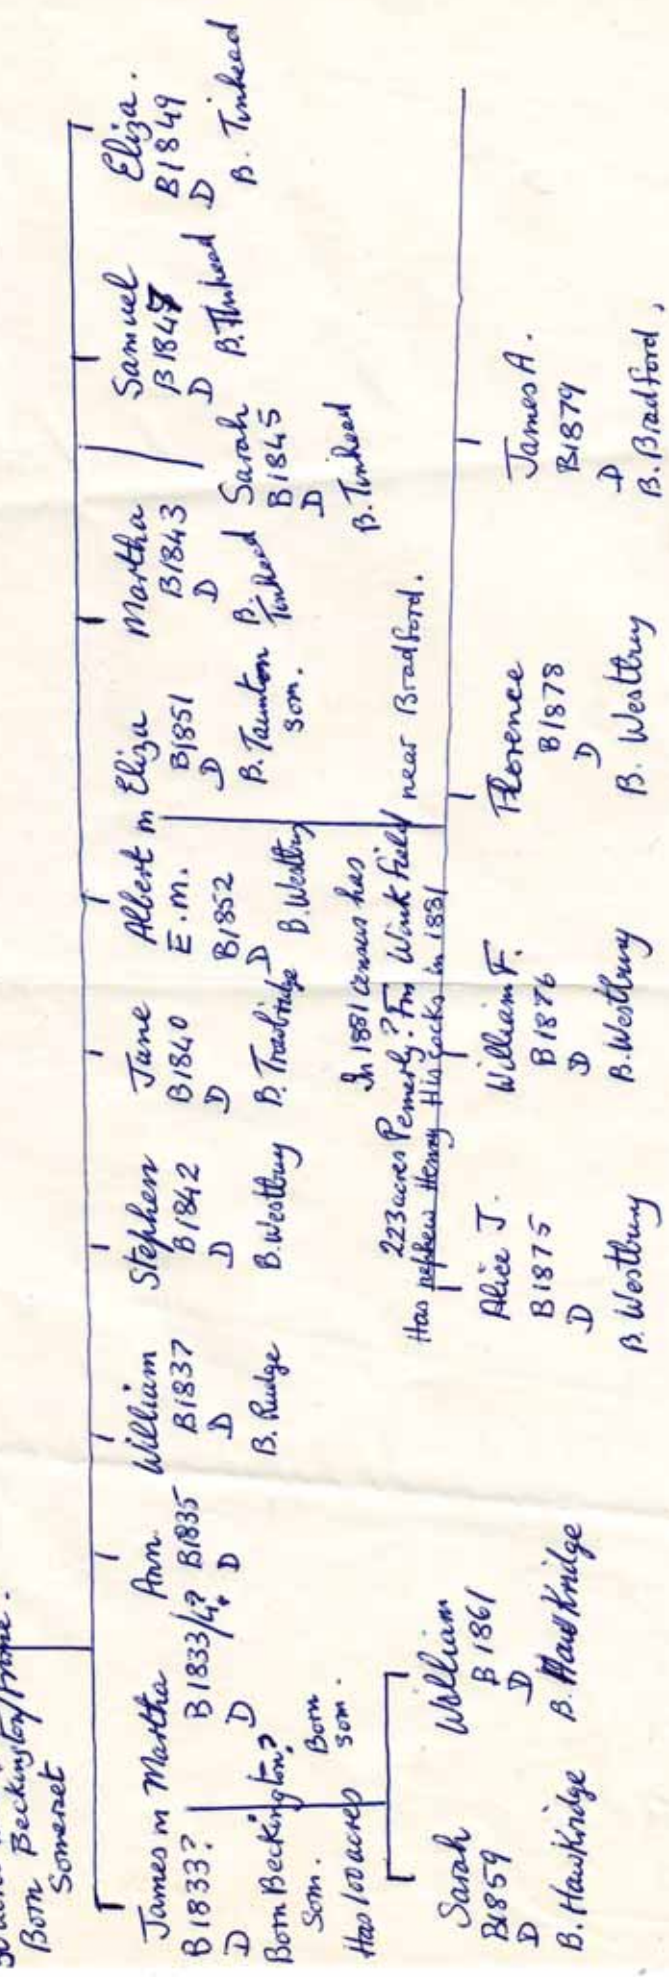 Born Beckington/Frome.
Somerset
James m Martha
B 1833?
D
Born Beckington?
Som.
Has 100 acres
B 1833/4?
D
Born
Som.
Ann
B1835
D
William
B1837
D
B. Rudge
Stephen
B1842
D
B. Westbury
Jane
B1840
D
B. Trowbridge
Albert m Eliza
E. m.
B1852
D
B. Westbury
B1851
D
B. Taunton
Som.
Martha
B1843
D
B. Tinhead
Sarah
B1845
D
B. Tinhead
Samuel
B1847
D
B. Tinhead
Eliza.
B1849
D
B. Tinhead
In 1881 census has
223 acres Pomerly? Fm Wink field near Bradford.
Has nephew Henry Hiscocks in 1881
Sarah
B1859
D
B. Hawkridge
William
B 1861
D
B. Hawkridge
Alice J.
B1875
D
B. Westbury
William F.
B1876
D
B. Westbury
Florence
B1878
D
B. Westbury
James A.
B1879
D
B. Bradford.